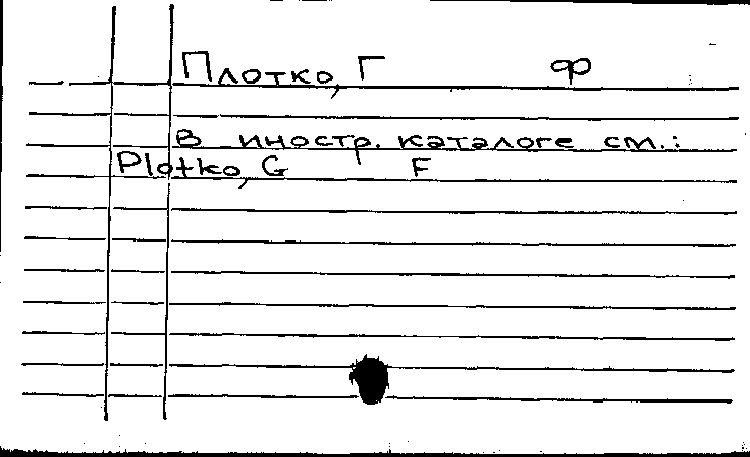 Плотко, Г ф
в иностр. каталоге см.:
Plotko, G F